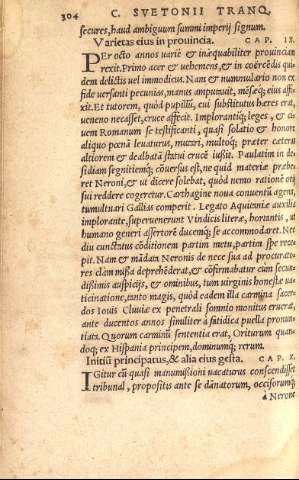 304 C. SVETONII TRANQ.
secures, haud ambiguum summi imperij signum.
Varietas eius in prouincia. CAP. IX.
PEr octo annos varie & inæquabiliter prouinciam
rexit. Primo acer & uehemens, & in coërcēdis qui-
dem delictis uel immodicus. Nam & nummulario non ex
fide versanti pecunias, manus amputauit, mēsæq; eius affi-
xit. Et tutorem, quòd pupillū, cui substitutus hæres erat,
ueneno necasset, cruce affecit. Implorantiq; leges, & ci-
uem Romanum se testificanti, quasi solatio & honore
aliquo pœnā leuaturus, mutari, multoq; præter cæteras
altiorem & dealbatā statui crucē iussit. Paulatim in de-
sidiam segnitiemq; cōuersus est, ne quid materiæ præbe-
ret Neroni, & ut dicere solebat, quòd nemo rationē otij
sui reddere cogeretur. Carthagine noua conuentū agens,
tumultuari Gallias comperit. Legato Aquitaniæ auxilia
implorante, superuenerunt Vindicis literæ, hortantis, ut
humano generi assertorē ducemq; se accommodaret. Nec
diu cunctatus cōditionem partim metu, partim spe rece-
pit. Nam & mādata Neronis de nece sua ad procurato-
res clàm missa deprehēderat, & cōfirmabatur cum secun-
dissimis auspicijs, & ominibus, tum uirginis honestæ ua-
ticinatione, tanto magis, quòd eadem illa carmina sacer-
dos Iouis Cluniæ ex penetrali somnio monitus eruerat,
ante ducentos annos similiter à fatidica puella pronun-
tiata. Quorum carminū sententia erat, Oriturum quan-
doq; ex Hispania principem, dominumq; rerum.
Initiū principatus, & alia eius gesta. CAP. X.
IGitur cū quasi manumissioni uacaturus conscendisset
tribunal, propositis ante se dānatorum, occisorumq;
à Nerone